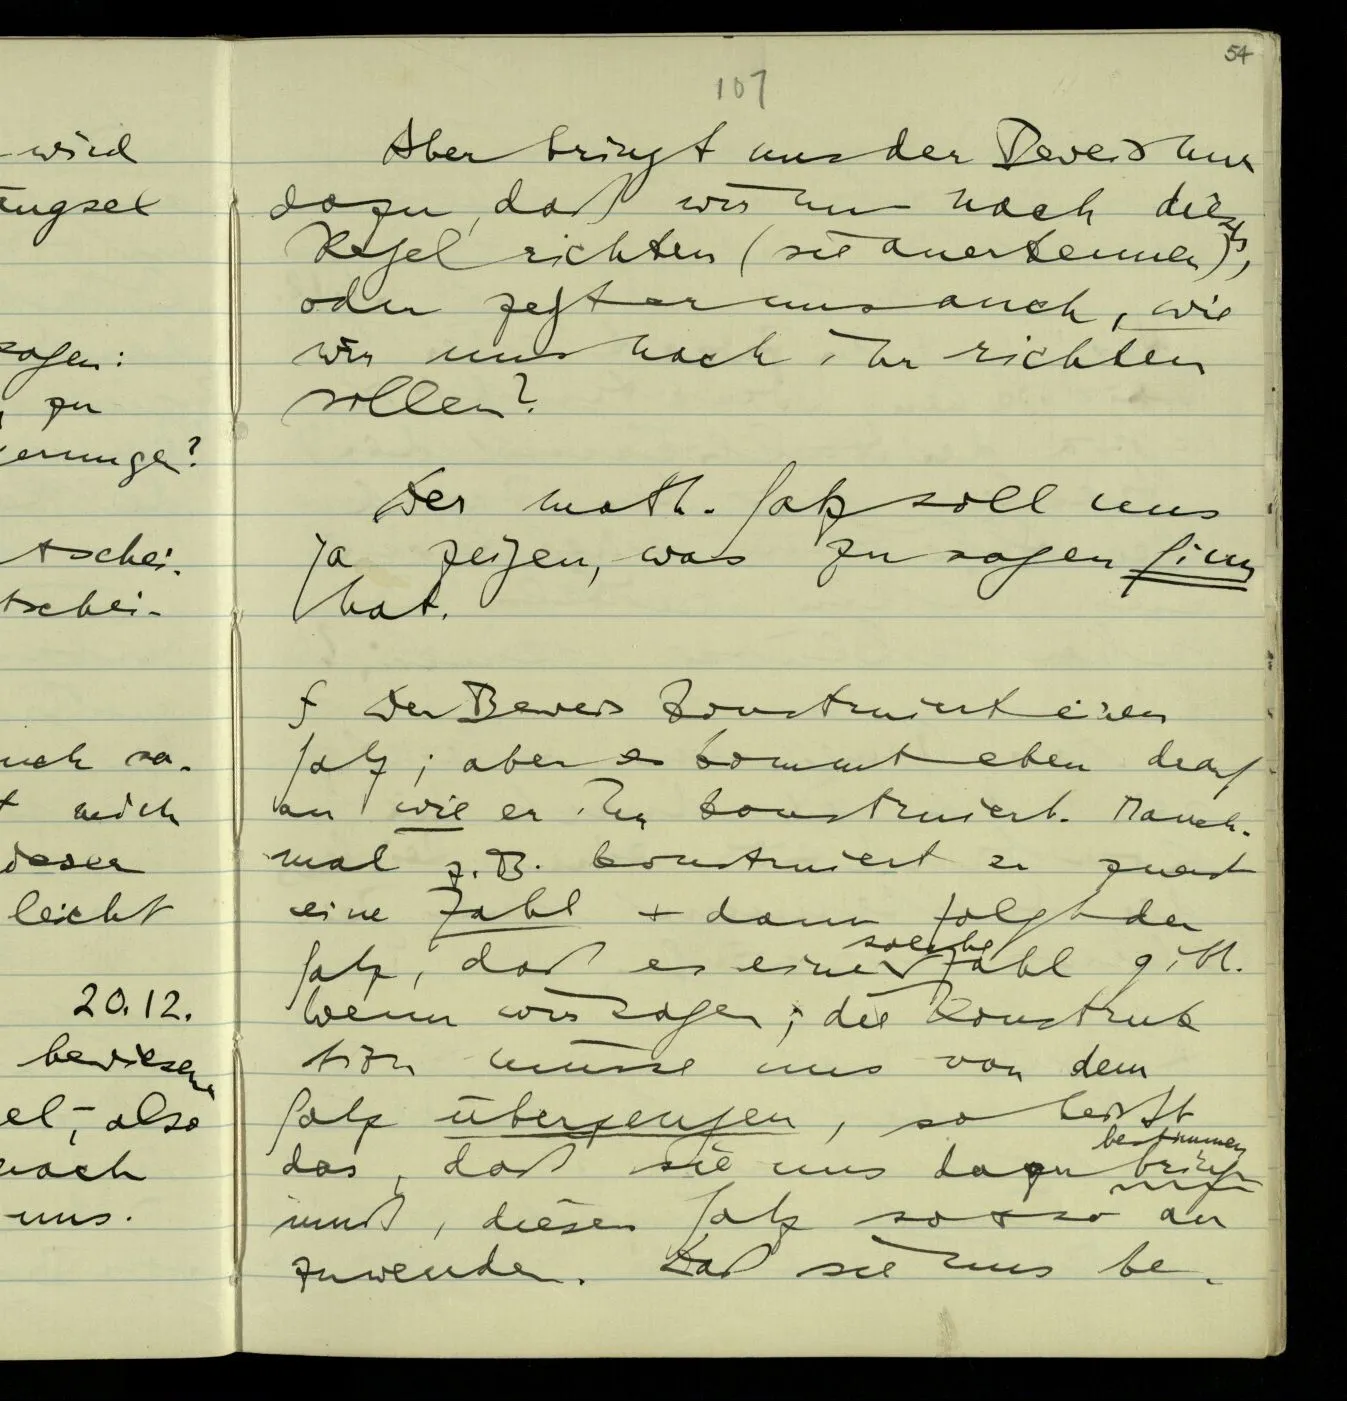 wird
ängsel
sagen:
zu
erunge?
tschei-
tschei-
uch sa-
t mich
dieser
leicht
20.12.
bewiesene
el, – also
nach
uns.
54
107
Aber bringt uns der Beweis nur
dazu, daß wir uns nach dieser
Regel richten (sie anerkennen),
oder zeigt er uns auch, wie
wir uns nach ihr richten
sollen?
Der math. Satz soll uns
ja zeigen, was zu sagen Sinn
hat.
∫ Der Beweis konstruiert einen
Satz; aber es kommt eben drauf
an wie er ihn konstruiert. Manch-
mal z.B. konstruiert er zuerst
eine Zahl + dann folgt der
Satz, daß es eine solche Zahl gibt.
Wenn wir sagen, die Konstruk
tion müsse uns von dem
Satz überzeugen, so heißt
das, daß sie uns dazu bringen bestimmen
muß, diesen Satz so + so an
zuwenden. Daß sie uns be-